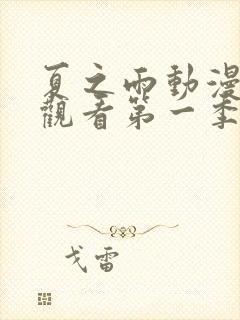 夏之雨動漫
觀看第一季
戈雷